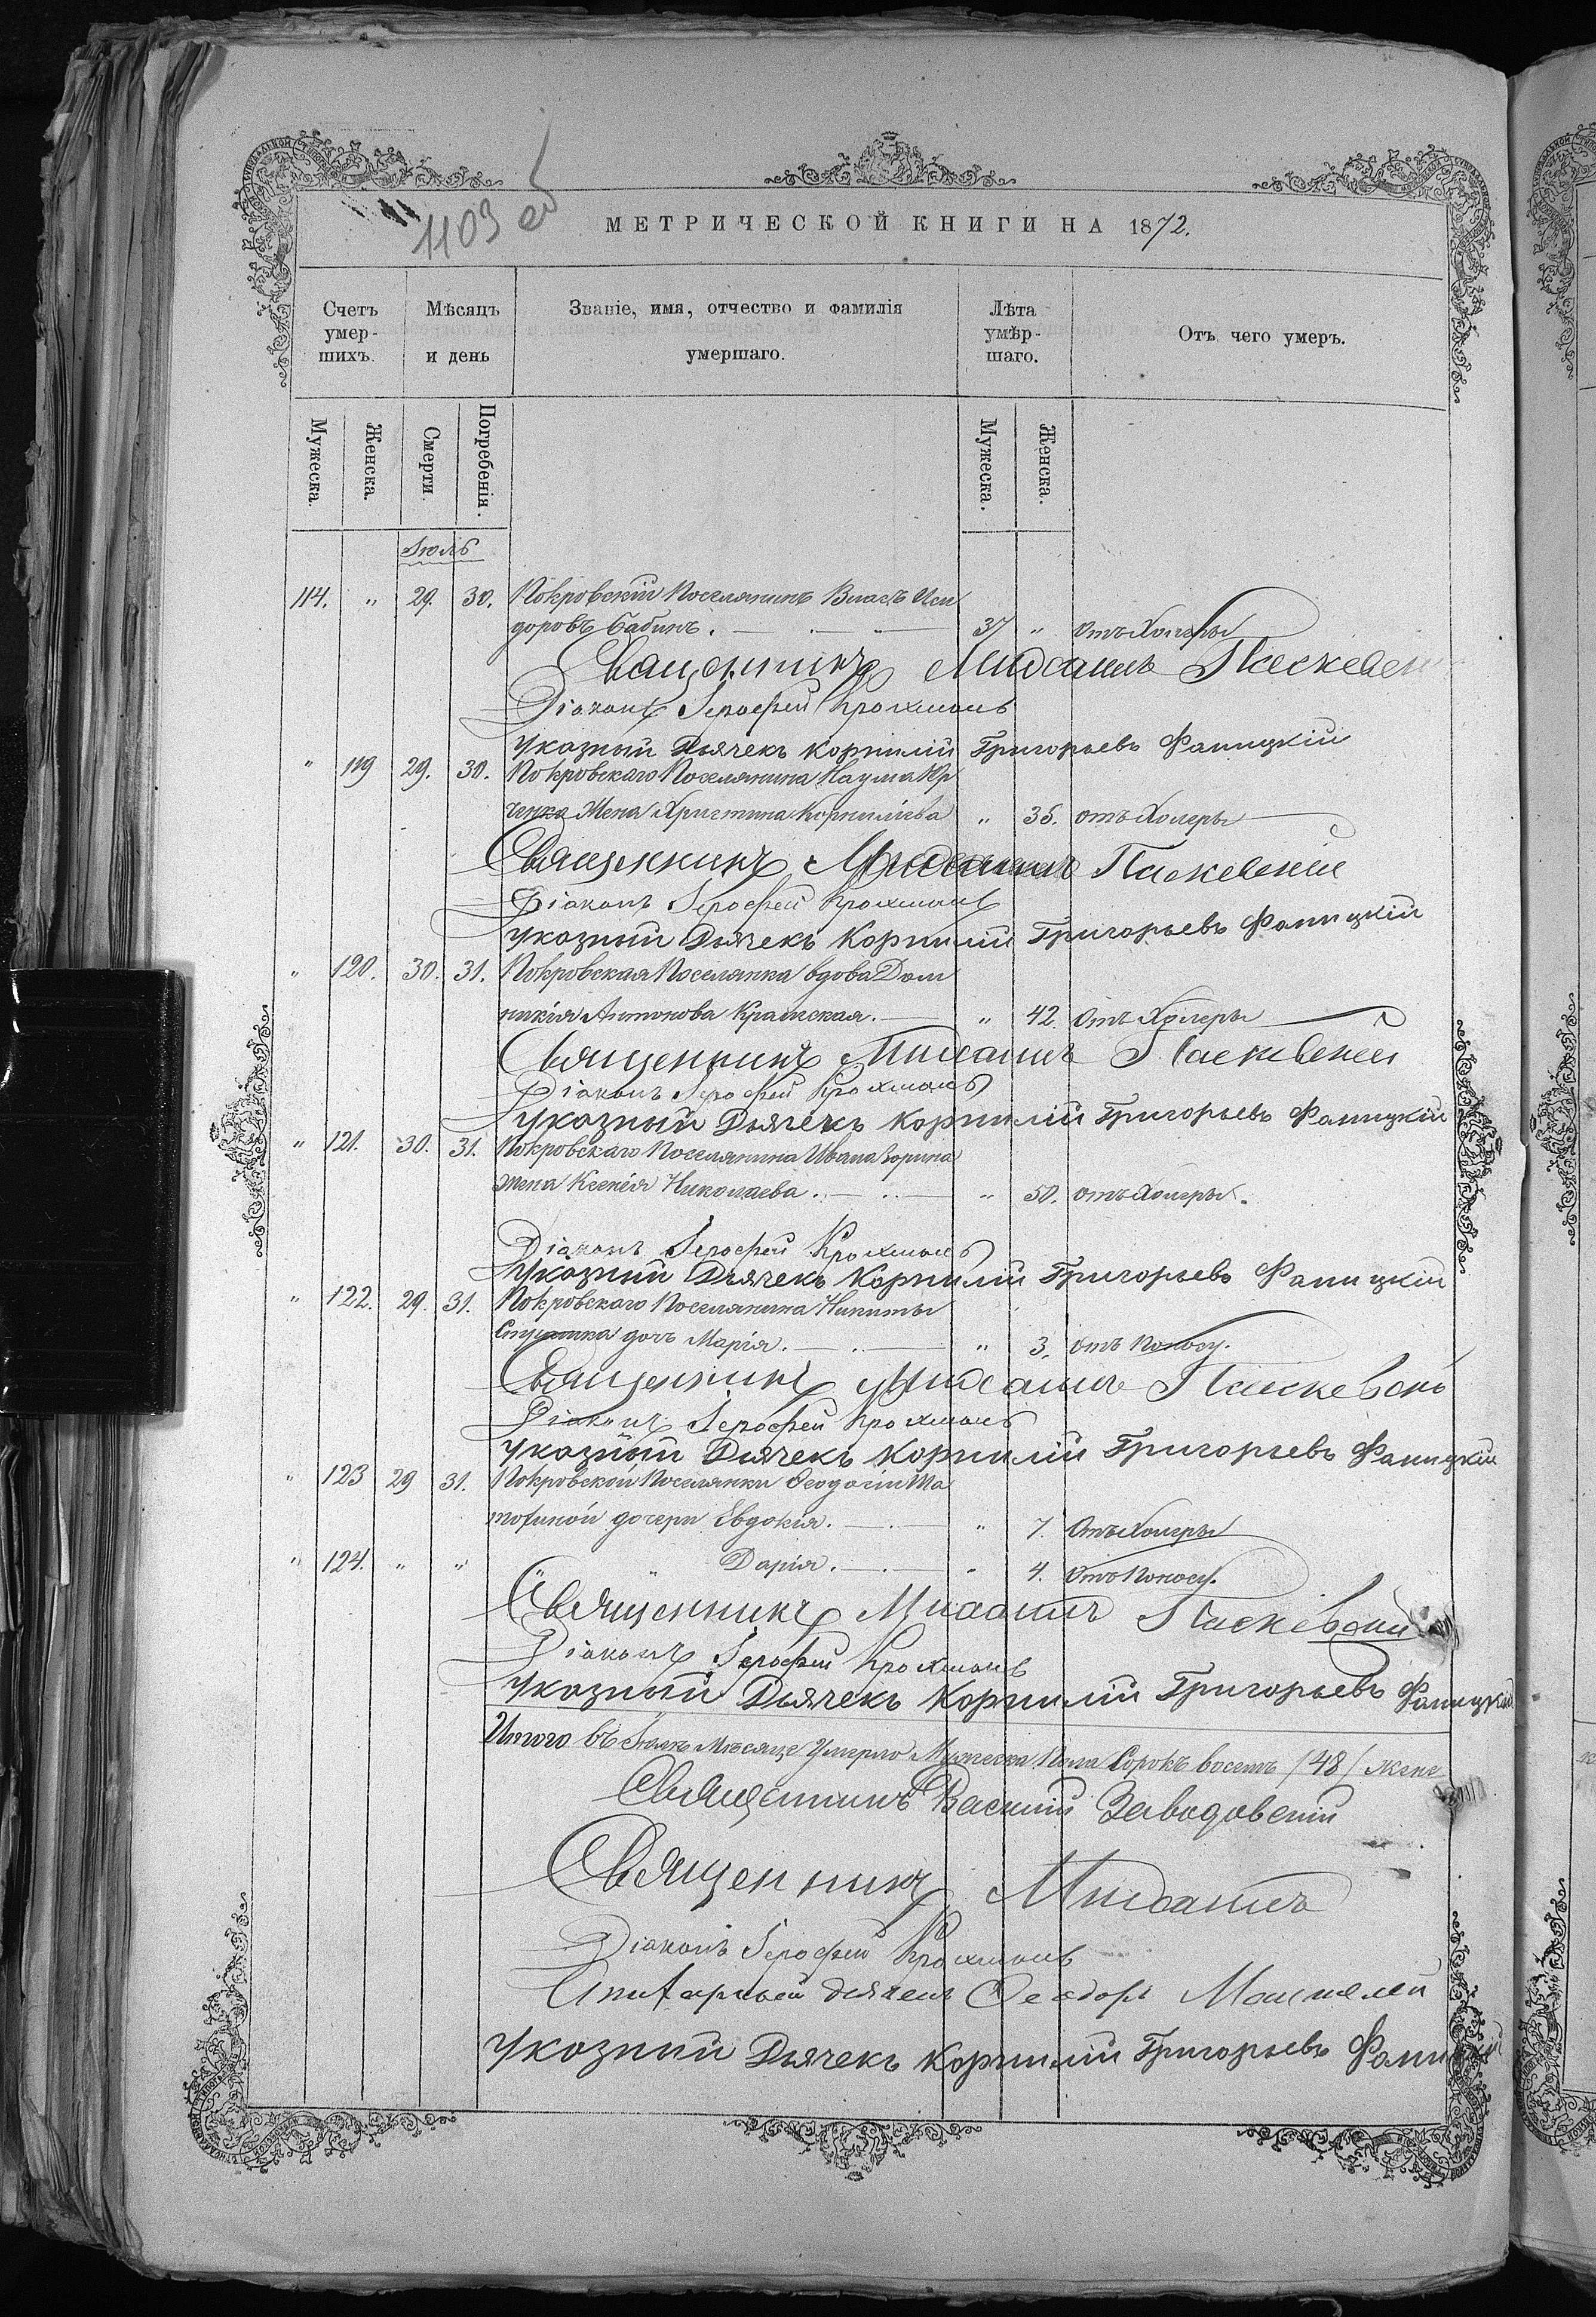 1103 об
МЕТРИЧЕСКОЙ КНИГИ НА 1872.
Счетъ умер-шихъ.
Мѣсяцъ и день
Званіе, имя, отчество и фамилія умершаго.
Лѣта умѣр-шаго.
Отъ чего умеръ.
Мужеска.
Женска.
Смерти.
Погребенія.
Мужеска.
Женска.
Іюль
114. " 29. 30. Покровскій Поселянинъ Власъ Иси
доровъ Бабинъ. 37 " отъ Холеры
Священникъ Михаилъ Паскевскій
Діаконъ Іерофей Крохмалъ
Указный Дьячекъ Корнилій Григорьевъ Фаницкій
" 119 29. 30. Покровскаго Поселянина Наума Юр
ченка Жена Христина Корниліева " 35. отъ Холеры
Священникъ Михаилъ Паскевскій
Діаконъ Іерофей Крохмалъ
Указный Дьячекъ Корнилій Григорьевъ Фаницкій
" 120. 30. 31. Покровская Поселянка вдова Дом
никія Антонова Крамская. " 42. отъ Холеры
Священникъ Михаилъ Паскевскій
Діаконъ Іерофей Крохмалъ
Указный Дьячекъ Корнилій Григорьевъ Фаницкій
" 121. 30. 31. Покровскаго Поселянина Ивана Зорина
жена Ксенія Николаева. " 50. отъ Холеры.
Діаконъ Іерофей Крохмалъ
Указный Дьячекъ Корнилій Григорьевъ Фаницкій
" 122. 29. 31. Покровскаго Поселянина Никиты
дочь Марія. " 3. отъ Поносу.
Священникъ Михаилъ Паскевскій
Діаконъ Іерофей Крохмалъ
Указный Дьячекъ Корнилій Григорьевъ Фаницкій
" 123 29 31. Покровской Поселянки Ѳеодосіи Ма
тохиной дочери Евдокія. " 7. отъ Холеры
" 124. " " " Дарія. " 4. отъ Поносу.
Священникъ Михаилъ Паскевскій
Діаконъ Іерофей Крохмалъ
Указный Дьячекъ Корнилій Григорьевъ Фаницкій
Итого въ Іюлѣ Мѣсяцѣ Умерло Мужеска Пола Сорокъ восемь (48) женс
Священникъ Василій Заводовскій
Священникъ Михаилъ
Діаконъ Іерофей Крохмалъ
дьячекъ Ѳеодоръ
Указный Дьячекъ Корнилій Григорьевъ Фаницкій